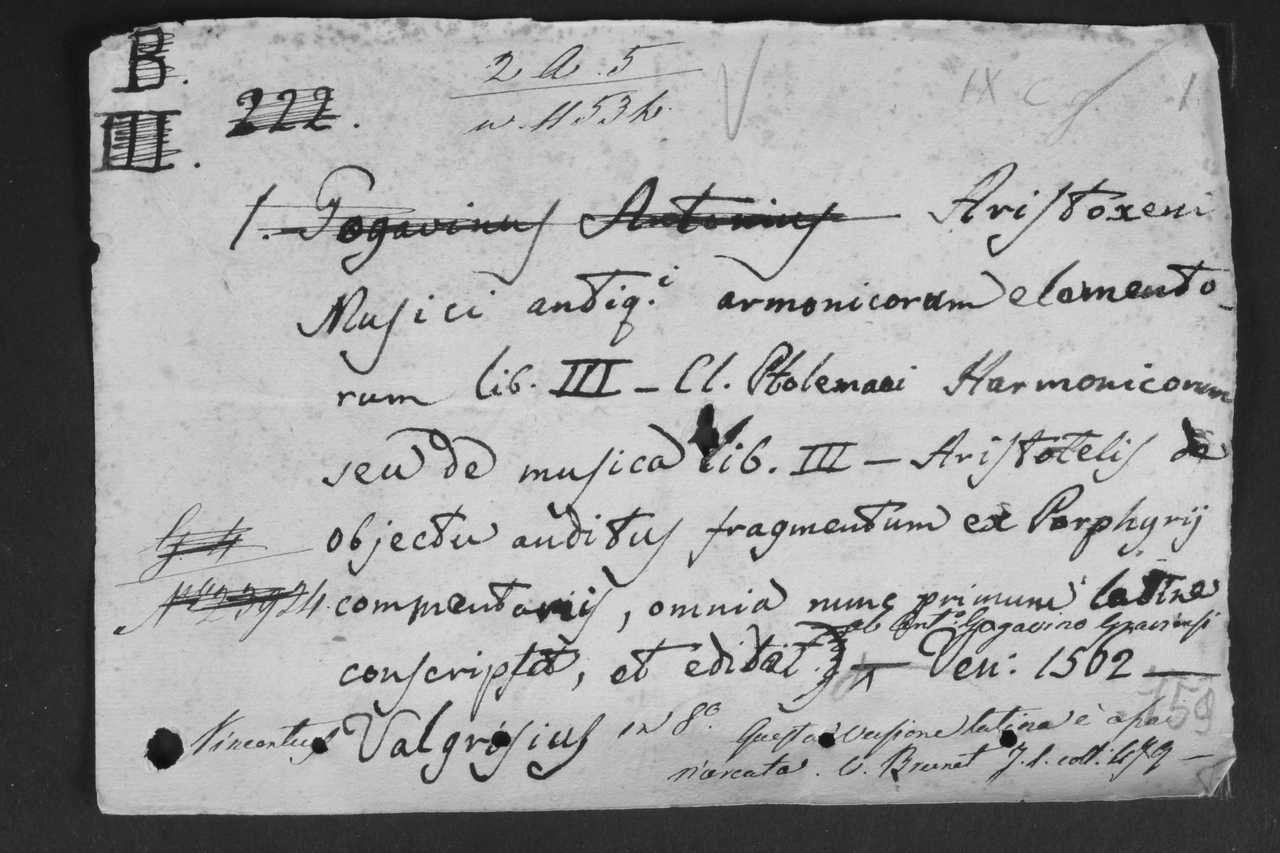 B.
III.
222.
2 A. 5
n. 11534
IX C g. 1
1. Gogavinus Antonius Aristoxeni
Musici antiq.i armonicorum elemento-
rum lib. III – Cl. Ptolemaei Harmonicorum
seu de musica lib. III – Aristotelis de
objectu auditus fragmentum ex Porphyrij
commentariis, omnia nunc primum latine
ab Ant.o Gogavino Graviensi
conscripta, et edita — Ven: 1562 —
159
Vincentus Valgrisius in 8.o Questa versione latina è assai
ricercata. V. Brunet